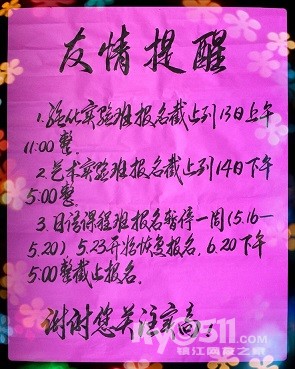 友情提醒
1.强化实验班报名截止到13日上午
11:00整.
2.艺术实验班报名截止到14日下午
5:00整.
3.日语课程班报名暂停一周(5.16—
5.20) 5.23开始恢复报名,6.20下午
5:00整截止报名.
谢谢您关注实高!
my0511.com
镇江网友之家